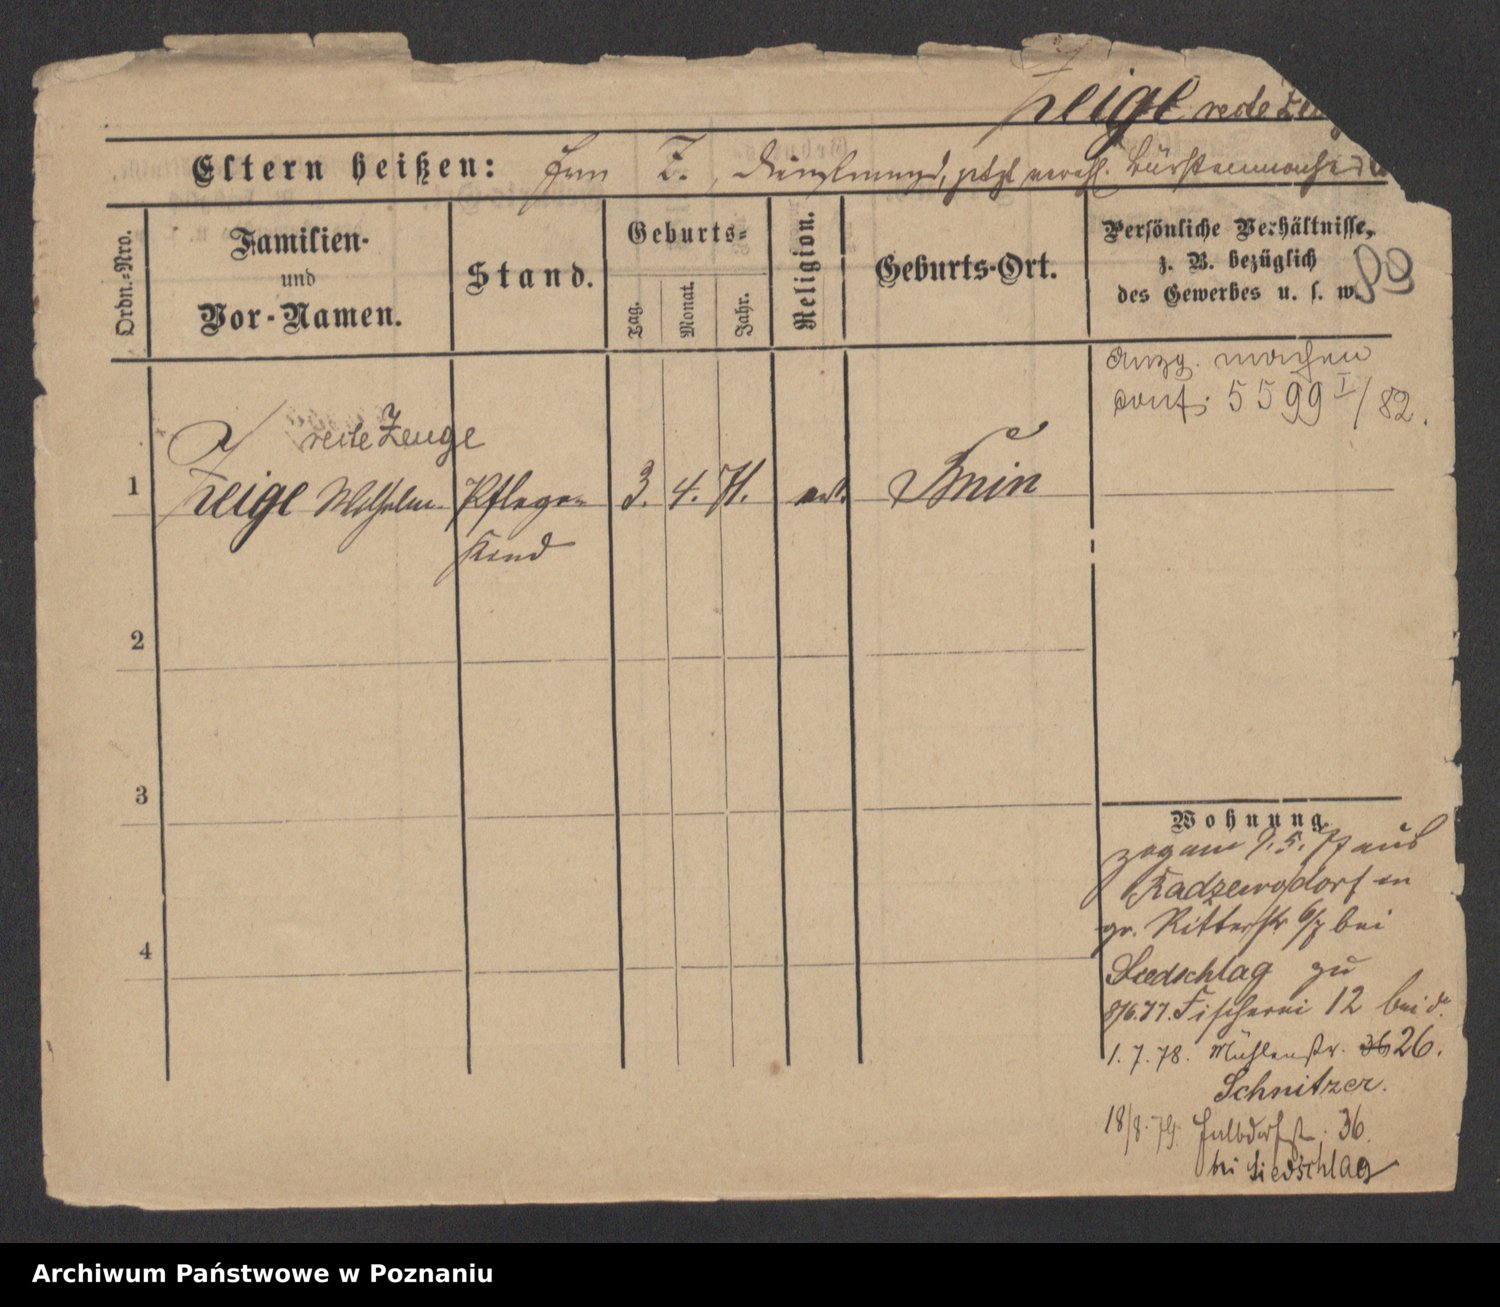 Zeige recte Zeug
Eltern heißen: Z., jetzt verehl.
Ordn.-Nro.
Familien-
und
Vor-Namen.
Stand.
Geburts-
Tag.
Monat.
Jahr.
Religion.
Geburts-Ort.
Persönliche Verhältnisse,
z. B. bezüglich
des Gewerbes u. s. w.
89
Anzg. machen
conf. 5599 I/82.
recte Zeuge
1 Zeige Wilhelm Pflege- 3. 4. 71. ev.
Kind
2
3
4
Wohnung.
zog am 9. 5. 77 aus
gr. Ritterstr 6/7 bei
Siedschlag zu
8/6.77. Fischerei 12 bei d.
1. 7. 78. Mühlenstr. 36 26.
Schnitzer.
18/8. 79. Halbdorfstr. 36.
bei Siedschlag
Archiwum Państwowe w Poznaniu